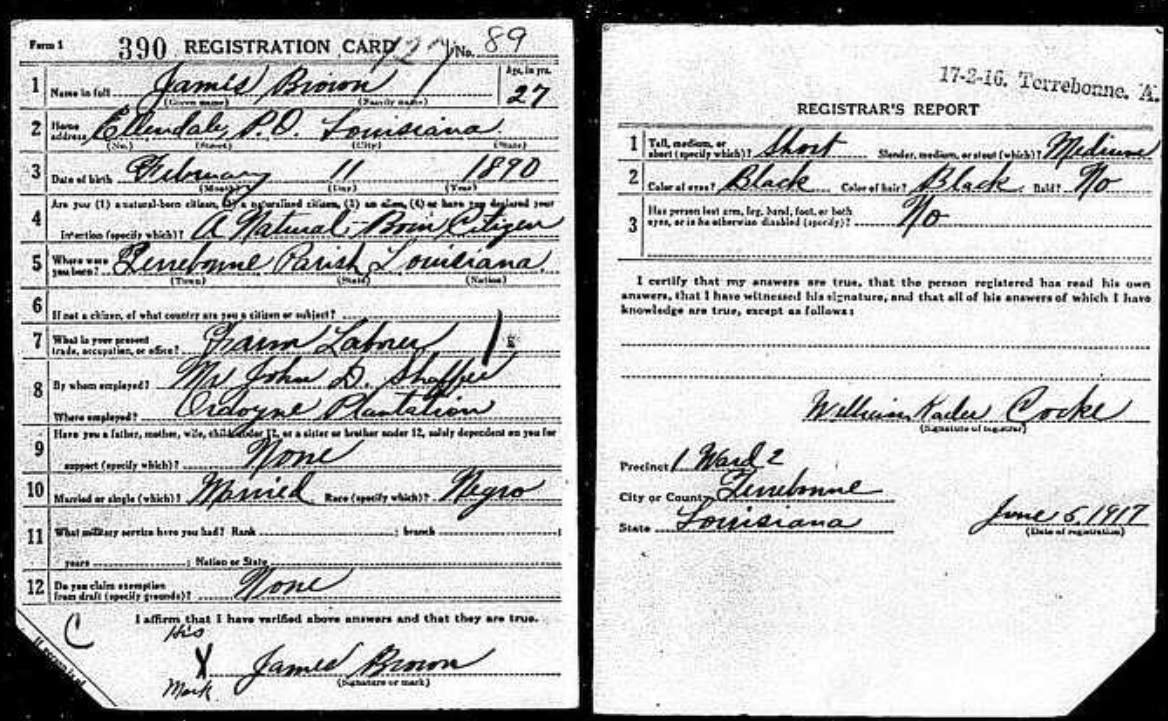 Form 1 390 REGISTRATION CARD No. 89
1 Name in full James Brown Age, in yrs. 27
(Given name) (Family name)
2 Home address Ellendale, P.O. Louisiana
(No.) (Street) (City) (State)
3 Date of birth February 11 1890
(Month) (Day) (Year)
4 Are you (1) a natural-born citizen, (2) a naturalized citizen, (3) an alien, (4) or have you declared your
intention (specify which)? A Natural-Born Citizen
5 Where were you born? Terrebonne Parish Louisiana
(Town) (State) (Nation)
6 If not a citizen, of what country are you a citizen or subject?
7 What is your present trade, occupation, or office? Farm Laborer
8 By whom employed? Mr John D. Shaffer
Where employed? Ardoyne Plantation
9 Have you a father, mother, wife, child under 12, or a sister or brother under 12, solely dependent on you for
support (specify which)? None
10 Married or single (which)? Married Race (specify which)? Negro
11 What military service have you had? Rank ; branch ;
years ; Nation or State
12 Do you claim exemption from draft (specify grounds)? None
C I affirm that I have verified above answers and that they are true.
His
X James Brown
Mark (Signature or mark)
If person is of
17-2-16. Terrebonne. A.
REGISTRAR'S REPORT
1 Tall, medium, or short (specify which)? Short Slender, medium, or stout (which)? Medium
2 Color of eyes? Black Color of hair? Black Bald? No
3 Has person lost arm, leg, hand, foot, or both
eyes, or is he otherwise disabled (specify)? No
I certify that my answers are true, that the person registered has read his own
answers, that I have witnessed his signature, and that all of his answers of which I have
knowledge are true, except as follows:
William Kader Cocke
(Signature of registrar)
Precinct 1 Ward 2
City or County Terrebonne
State Louisiana June 5, 1917
(Date of registration)